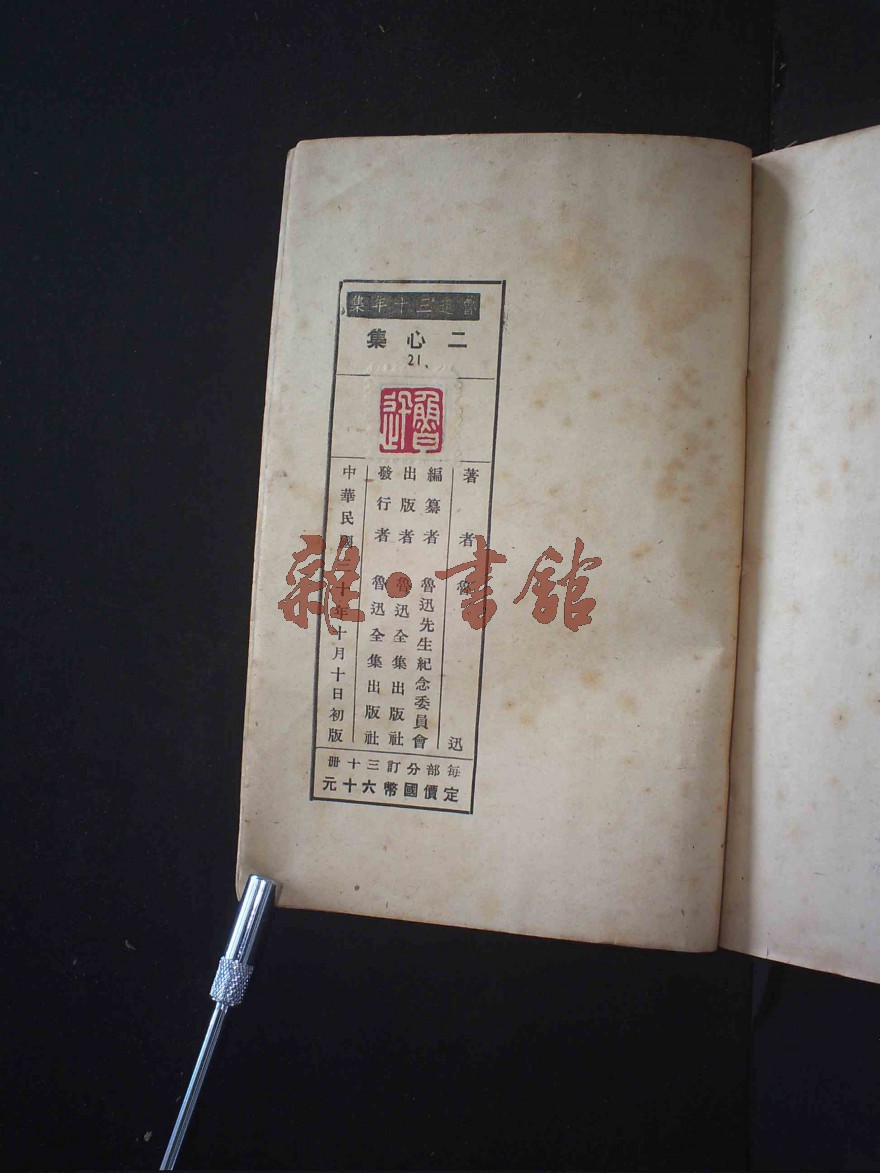 魯迅三十年集
二心集
21.
魯迅
著者 魯迅
編纂者 魯迅先生紀念委員會
出版者 魯迅全集出版社
發行者 魯迅全集出版社
中華民國三十年十月十日初版
每部分訂三十冊
定價國幣六十元
雜·書館